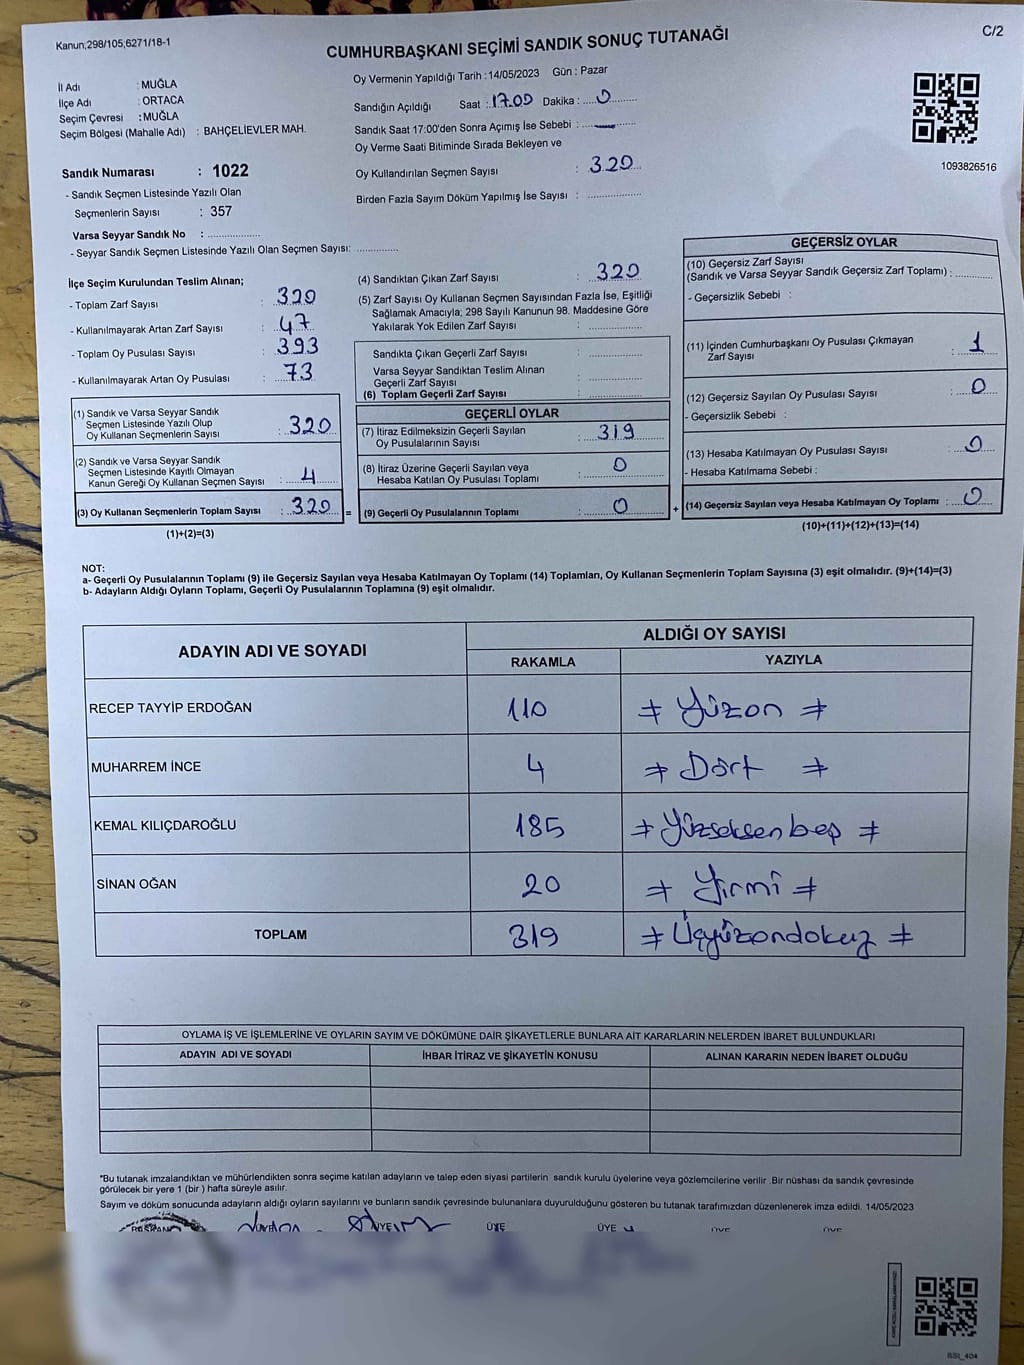 Kanun;298/105;6271/18-1
C/2
CUMHURBAŞKANI SEÇİMİ SANDIK SONUÇ TUTANAĞI
İl Adı : MUĞLA
İlçe Adı : ORTACA
Seçim Çevresi : MUĞLA
Seçim Bölgesi (Mahalle Adı) : BAHÇELİEVLER MAH.
Oy Vermenin Yapıldığı Tarih : 14/05/2023 Gün : Pazar
Sandığın Açıldığı Saat : 17.00 Dakika : 0
Sandık Saat 17:00'den Sonra Açımış İse Sebebi :
Oy Verme Saati Bitiminde Sırada Bekleyen ve
Oy Kullandırılan Seçmen Sayısı : 320
Birden Fazla Sayım Döküm Yapılmış İse Sayısı :
1093826516
Sandık Numarası : 1022
- Sandık Seçmen Listesinde Yazılı Olan
Seçmenlerin Sayısı : 357
Varsa Seyyar Sandık No :
- Seyyar Sandık Seçmen Listesinde Yazılı Olan Seçmen Sayısı:
İlçe Seçim Kurulundan Teslim Alınan;
- Toplam Zarf Sayısı : 320
- Kullanılmayarak Artan Zarf Sayısı : 47
- Toplam Oy Pusulası Sayısı : 393
- Kullanılmayarak Artan Oy Pusulası : 73
(1) Sandık ve Varsa Seyyar Sandık
Seçmen Listesinde Yazılı Olup
Oy Kullanan Seçmenlerin Sayısı : 320
(2) Sandık ve Varsa Seyyar Sandık
Seçmen Listesinde Kayıtlı Olmayan
Kanun Gereği Oy Kullanan Seçmen Sayısı : 4
(3) Oy Kullanan Seçmenlerin Toplam Sayısı : 320
(1)+(2)=(3)
(4) Sandıktan Çıkan Zarf Sayısı : 320
(5) Zarf Sayısı Oy Kullanan Seçmen Sayısından Fazla İse, Eşitliği
Sağlamak Amacıyla; 298 Sayılı Kanunun 98. Maddesine Göre
Yakılarak Yok Edilen Zarf Sayısı :
Sandıkta Çıkan Geçerli Zarf Sayısı :
Varsa Seyyar Sandıktan Teslim Alınan
Geçerli Zarf Sayısı :
(6) Toplam Geçerli Zarf Sayısı :
GEÇERLİ OYLAR
(7) İtiraz Edilmeksizin Geçerli Sayılan
Oy Pusulalarının Sayısı : 319
(8) İtiraz Üzerine Geçerli Sayılan veya
Hesaba Katılan Oy Pusulası Toplamı : 0
= (9) Geçerli Oy Pusulalarının Toplamı : 0
GEÇERSİZ OYLAR
(10) Geçersiz Zarf Sayısı
(Sandık ve Varsa Seyyar Sandık Geçersiz Zarf Toplamı) :
- Geçersizlik Sebebi :
(11) İçinden Cumhurbaşkanı Oy Pusulası Çıkmayan
Zarf Sayısı : 1
(12) Geçersiz Sayılan Oy Pusulası Sayısı : 0
- Geçersizlik Sebebi :
(13) Hesaba Katılmayan Oy Pusulası Sayısı : 0
- Hesaba Katılmama Sebebi :
+ (14) Geçersiz Sayılan veya Hesaba Katılmayan Oy Toplamı : 0
(10)+(11)+(12)+(13)=(14)
NOT:
a- Geçerli Oy Pusulalarının Toplamı (9) ile Geçersiz Sayılan veya Hesaba Katılmayan Oy Toplamı (14) Toplamları, Oy Kullanan Seçmenlerin Toplam Sayısına (3) eşit olmalıdır. (9)+(14)=(3)
b- Adayların Aldığı Oyların Toplamı, Geçerli Oy Pusulalarının Toplamına (9) eşit olmalıdır.
ADAYIN ADI VE SOYADI ALDIĞI OY SAYISI
RAKAMLA YAZIYLA
RECEP TAYYİP ERDOĞAN 110 # Yüzon #
MUHARREM İNCE 4 # Dört #
KEMAL KILIÇDAROĞLU 185 # Yüzseksenbeş #
SİNAN OĞAN 20 # Yirmi #
TOPLAM 319 # Üçyüzondokuz #
OYLAMA İŞ VE İŞLEMLERİNE VE OYLARIN SAYIM VE DÖKÜMÜNE DAİR ŞİKAYETLERLE BUNLARA AİT KARARLARIN NELERDEN İBARET BULUNDUKLARI
ADAYIN ADI VE SOYADI İHBAR İTİRAZ VE ŞİKAYETİN KONUSU ALINAN KARARIN NEDEN İBARET OLDUĞU
*Bu tutanak imzalandıktan ve mühürlendikten sonra seçime katılan adayların ve talep eden siyasi partilerin sandık kurulu üyelerine veya gözlemcilerine verilir .Bir nüshası da sandık çevresinde
görülecek bir yere 1 (bir ) hafta süreyle asılır.
Sayım ve döküm sonucunda adayların aldığı oyların sayılarını ve bunların sandık çevresinde bulunanlara duyurulduğunu gösteren bu tutanak tarafımızdan düzenlenerek imza edildi. 14/05/2023
BAŞKAN ÜYE ÜYE ÜYE ÜYE ÜYE